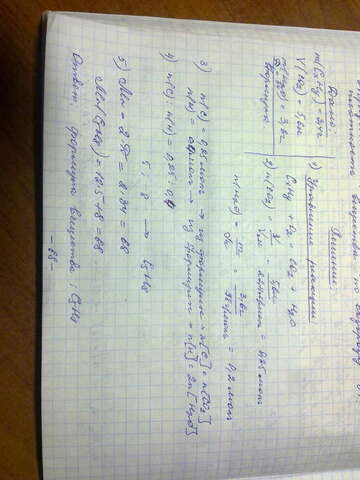 Дано:
m(CxHy) = 3,4г
V(CO2) = 5,6л
m(H2O) = 3,6г
D = 34
Формула:
Решение:
1) Уравнение реакции:
CxHy + O2 = CO2 + H2O
2) n(CO2) = V/Vm = 5,6л/22,4л/моль = 0,25 моль
n(H2O) = m/M = 3,6г/18г/моль = 0,2 моль
3) n(C) = 0,25 моль → из формулы → n[C] = n[CO2]
n(H) = 0,4 моль → из формулы → n[H] = 2n[H2O]
4) n(C) : n(H) = 0,25 : 0,4
5 : 8 → C5H8
5) M = 2 · 34 = 68
M(C5H8) = 12·5+8 = 68
Ответ: формула вещества: C5H8
- 68 -